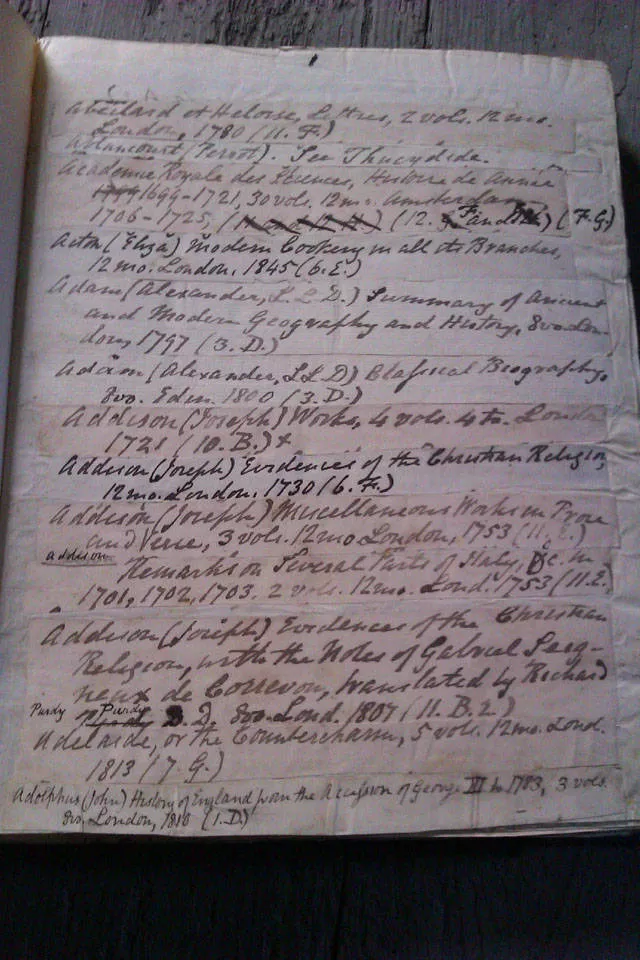 Abeilard et Heloise, Lettres, 2 vols. 12mo.
London, 1780 (11. F.)
Ablancourt (Perrot). See Thucydide.
Academie Royale des Sciences, Histoire de Année
1699-1721, 30 vols. 12mo. Amsterdam
1706-1725, (12. F and) (F.G.)
Acton (Eliza) Modern Cookery in all its Branches,
12mo. London, 1845 (6. E.)
Adam (Alexander, L.L.D.) Summary of Ancient
and Modern Geography and History, 8vo. Lon-
don, 1797 (3. D.)
Adam (Alexander, LLD) Classical Biography,
8vo. Edin. 1800 (3. D.)
Addison (Joseph) Works, 4 vols. 4to. London
1721 (10. B.)
Addison (Joseph) Evidences of the Christian Religion,
12mo. London, 1730 (6. F.)
Addison (Joseph) Miscellaneous Works in Prose
and Verse, 3 vols. 12mo London, 1753 (11. E.)
Addison
Remarks on Several Parts of Italy, &c. in
1701, 1702, 1703. 2 vols. 12mo. Lond. 1753 (11. E.
Addison (Joseph) Evidences of the Christian
Religion, with the Notes of Gabriel Seig-
neux de Correvon, translated by Richard
Purdy Purdy D. D. 8vo. Lond. 1807 (11. B. 2.)
Adelaide, or the Countercharm, 5 vols. 12mo. Lond.
1813 (7. G.)
Adolphus (John) History of England from the Accession of George III to 1783, 3 vols.
8vo, London, 1810 (1. D.)